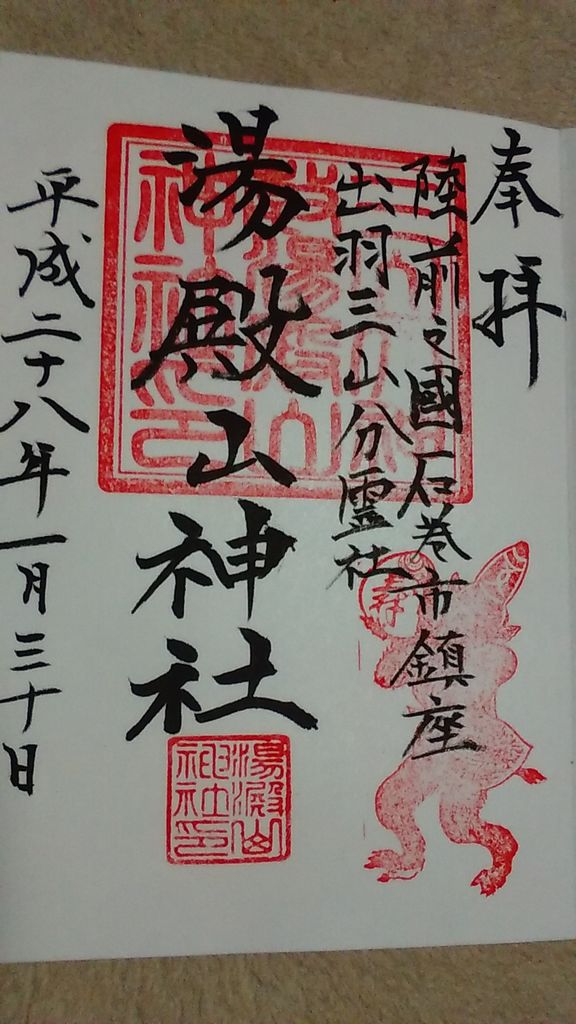 奉拝
陸前之國石巻市鎮座
出羽三山分霊社
湯殿山神社
平成二十八年一月三十日
湯殿山
神社印
寿